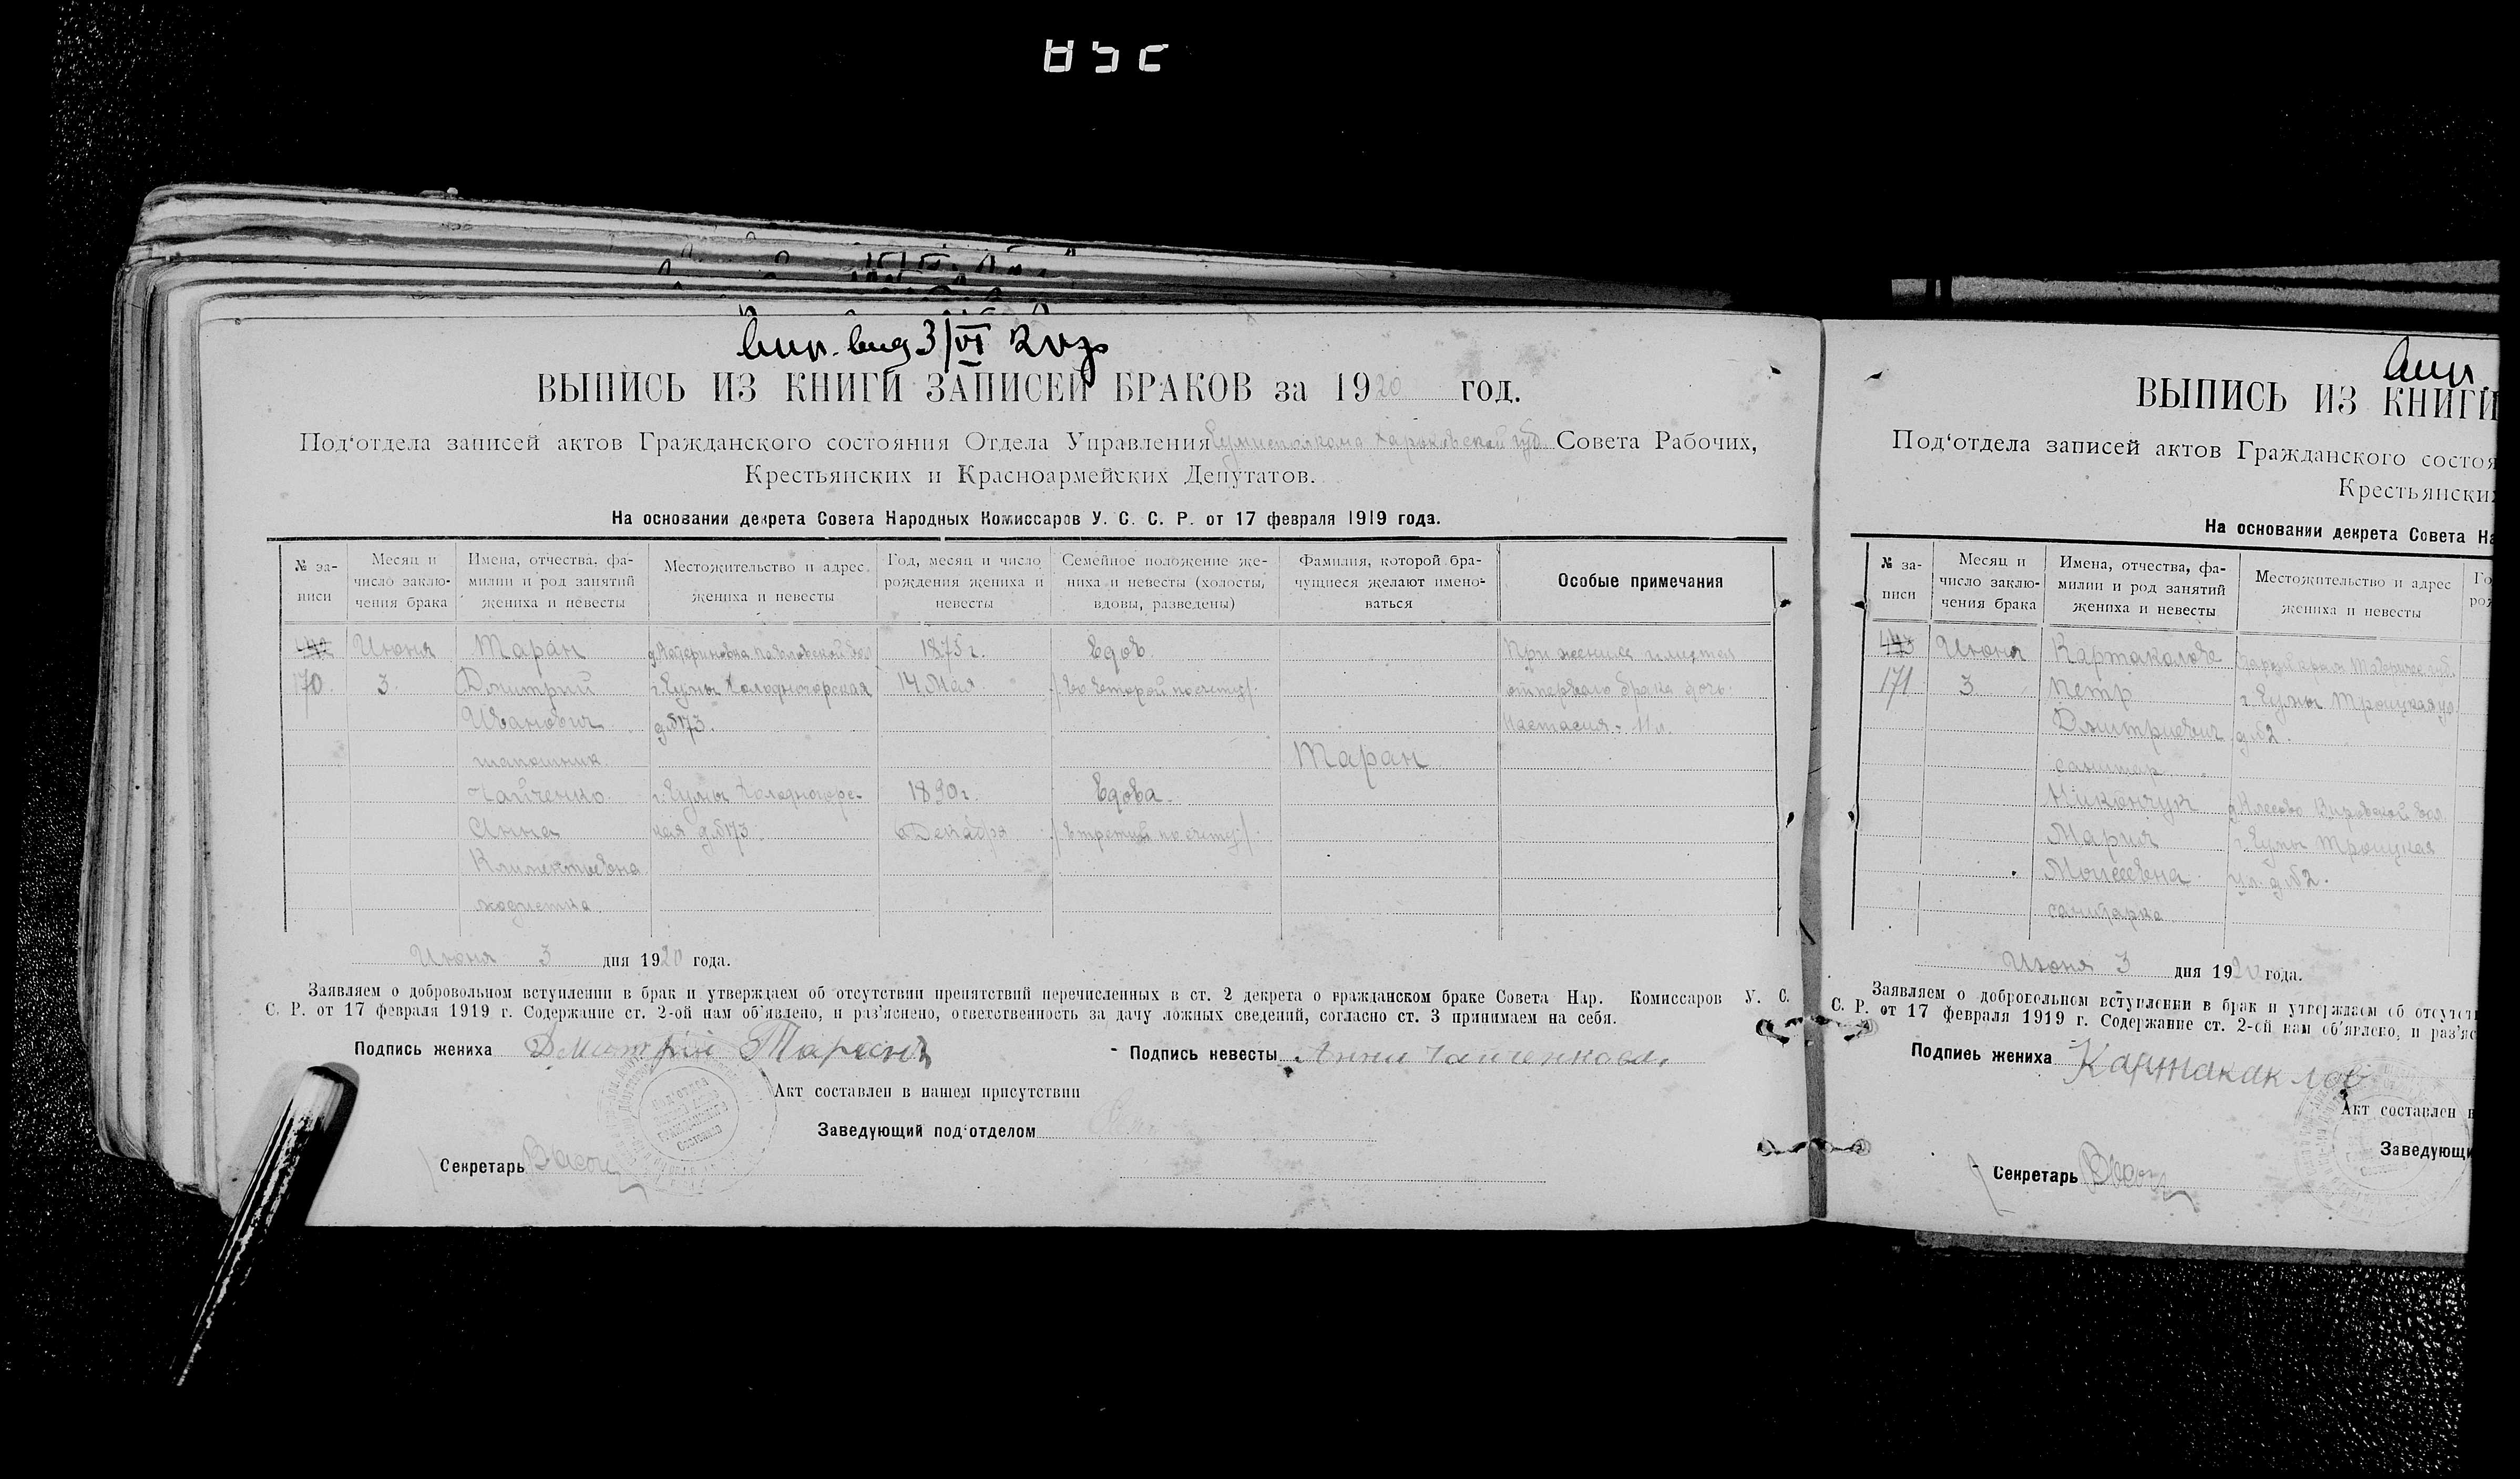 3/VI 20 г
ВЫПИСЬ ИЗ КНИГИ ЗАПИСЕЙ БРАКОВ за 1920 год.
Под‘отдела записей актов Гражданского состояния Отдела Управления Сумисполкома Харьковской губ. Совета Рабочих,
Крестьянских и Красноармейских Депутатов.
На основании декрета Совета Народных Комиссаров У. С. С. Р. от 17 февраля 1919 года.
№ за-
писи
Месяц и
число заклю-
чения брака
Имена, отчества, фа-
милии и род занятий
жениха и невесты
Местожительство и адрес
жениха и невесты
Год, месяц и число
рождения жениха и
невесты
Семейное положение же-
ниха и невесты (холосты,
вдовы, разведены)
Фамилия, которой бра-
чущиеся желают имено-
ваться
Особые примечания
442
170.
Июня
3.
Таран
Дмитрий
Иванович
шапошник.
Чайченко
Анна
Климентиевна
модистка.
Павловской вол
г. Сумы Холодногорская
д. №173.
г. Сумы Холодногорс-
кая д. №173.
1875 г.
14 Мая.
1890 г.
6 Декабря
Вдов.
/во второй по счету/.
Вдова.
/в третий по счету/.
Таран
При женихе имеется
от первого брака дочь.
Настасия - 11 л.
Июня 3 дня 1920 года.
Заявляем о добровольном вступлении в брак и утверждаем об отсутствии препятствий перечисленных в ст. 2 декрета о гражданском браке Совета Нар. Комиссаров У. С.
С. Р. от 17 февраля 1919 г. Содержание ст. 2-ой нам об‘явлено, и раз‘яснено, ответственность за дачу ложных сведений, согласно ст. 3 принимаем на себя.
Подпись жениха Дмитрій Таранъ
Подпись невесты Анна Чайченкова
Акт составлен в нашем присутствии
Заведующий под‘отделом
Секретарь
ВЫПИСЬ ИЗ КНИГИ
Под‘отдела записей актов Гражданского состоя
Крестьянских
На основании декрета Совета На
№ за-
писи
Месяц и
число заклю-
чения брака
Имена, отчества, фа-
милии и род занятий
жениха и невесты
Местожительство и адрес
жениха и невесты
Го
рож
443
171
Июня
3
Петр
Дмитриевич
санитар
Никончук
Мария
Моисеевна
санитарка
г. Сумы Троицкая ул.
д. №2.
г. Сумы Троицкая
ул. д. №2.
Июня 3 дня 1920 года.
Заявляем о добровольном вступлении в брак и утверждаем об отсутст
С. Р. от 17 февраля 1919 г. Содержание ст. 2-ой нам об‘явлено, и раз‘яс
Подпись жениха
Акт составлен в
Заведующи
Секретарь